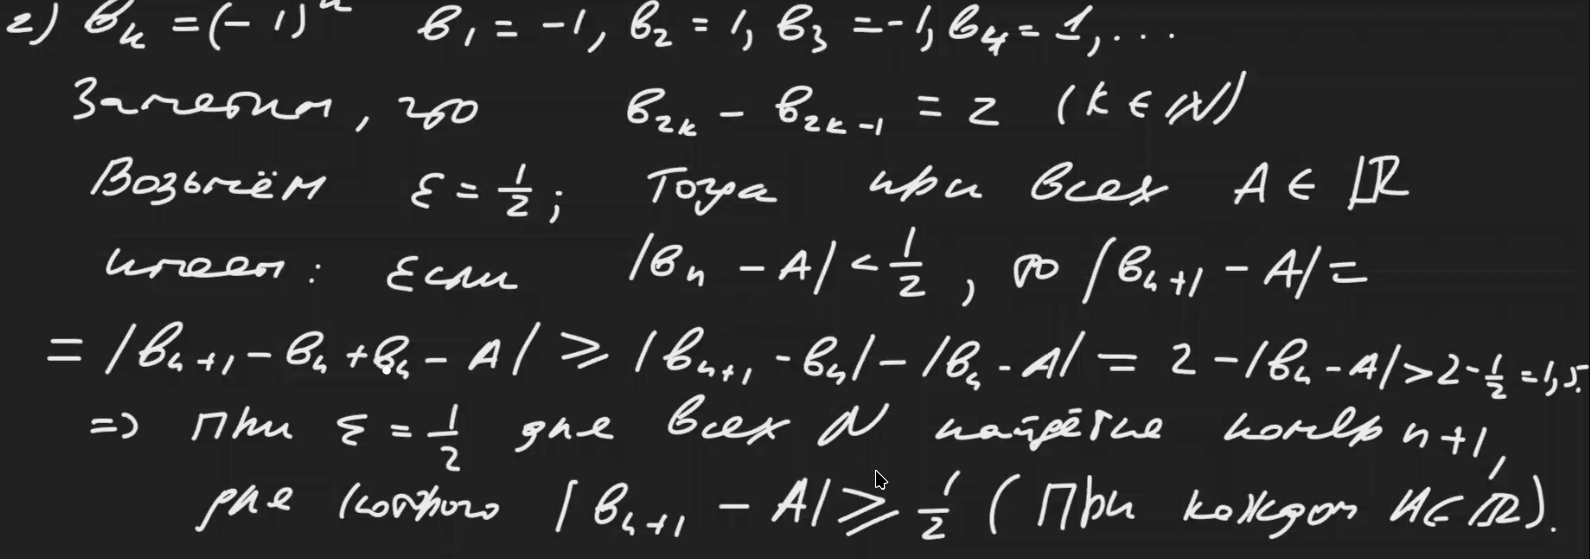 2) bₙ = (-1)ⁿ b₁ = -1, b₂ = 1, b₃ = -1, b₄ = 1, ...
Заметим, что b₂ₖ - b₂ₖ₋₁ = 2 (k ∈ ℕ)
Возьмём ε = 1/2; Тогда при всех A ∈ ℝ
имеем: Если |bₙ - A| < 1/2, то |bₙ₊₁ - A| =
= |bₙ₊₁ - bₙ + bₙ - A| ≥ |bₙ₊₁ - bₙ| - |bₙ - A| = 2 - |bₙ - A| > 2 - 1/2 = 1,5.
=> При ε = 1/2 для всех N найдётся номер n+1,
для которого |bₙ₊₁ - A| ≥ 1/2 (При каждом A ∈ ℝ).